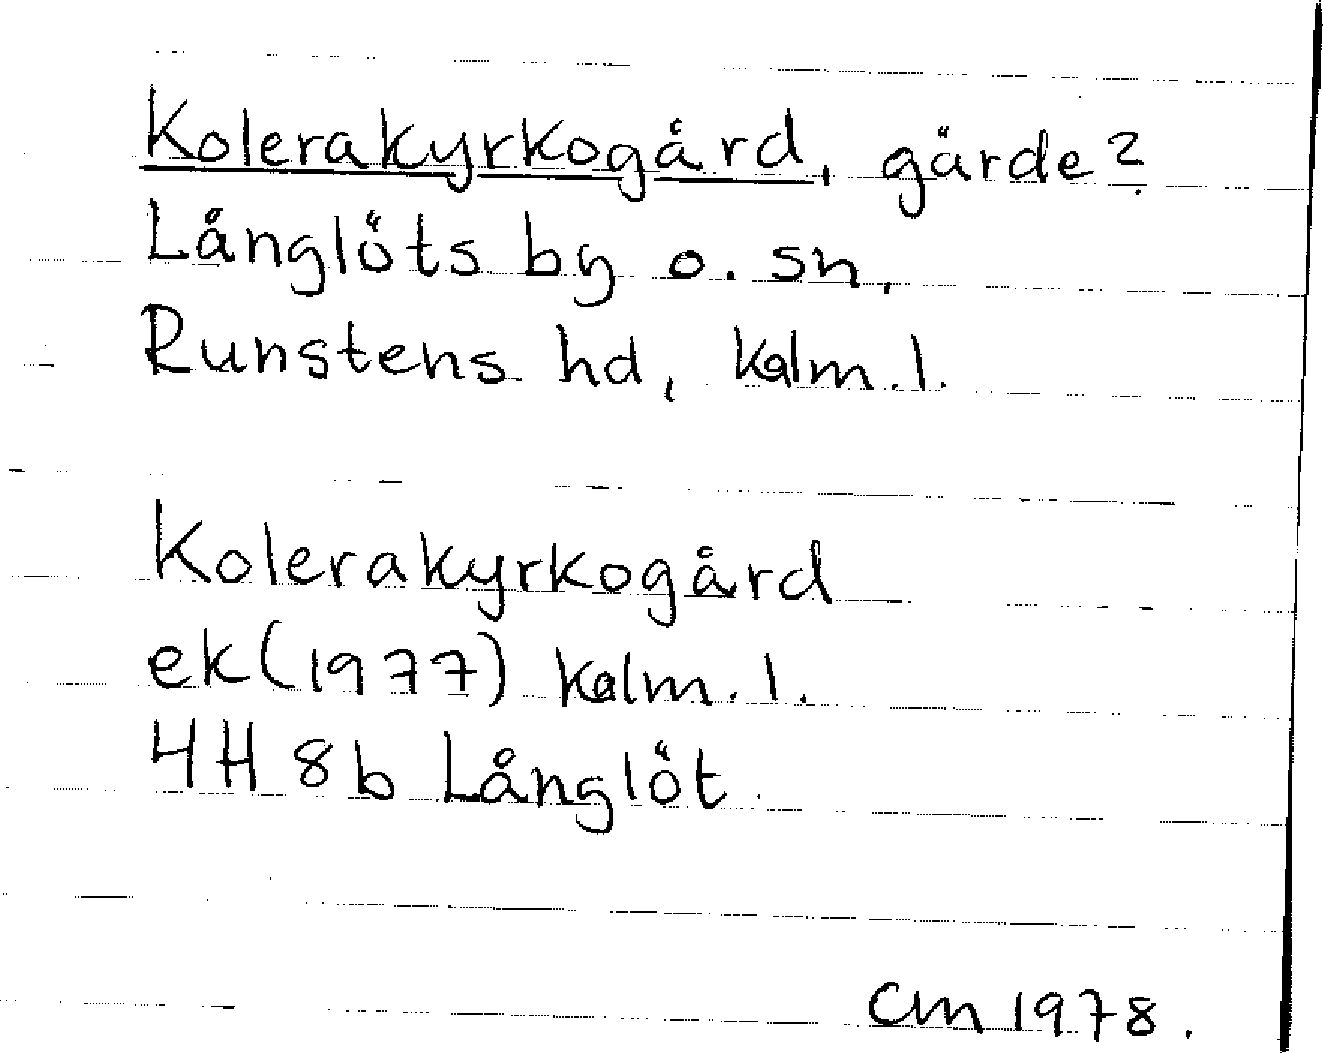 Kolerakyrkogård, gärde?
Långlöts by o. sn,
Runstens hd, Kalm.l.
Kolerakyrkogård
ek(1977) Kalm.l.
4H 8b Långlöt.
CM 1978.